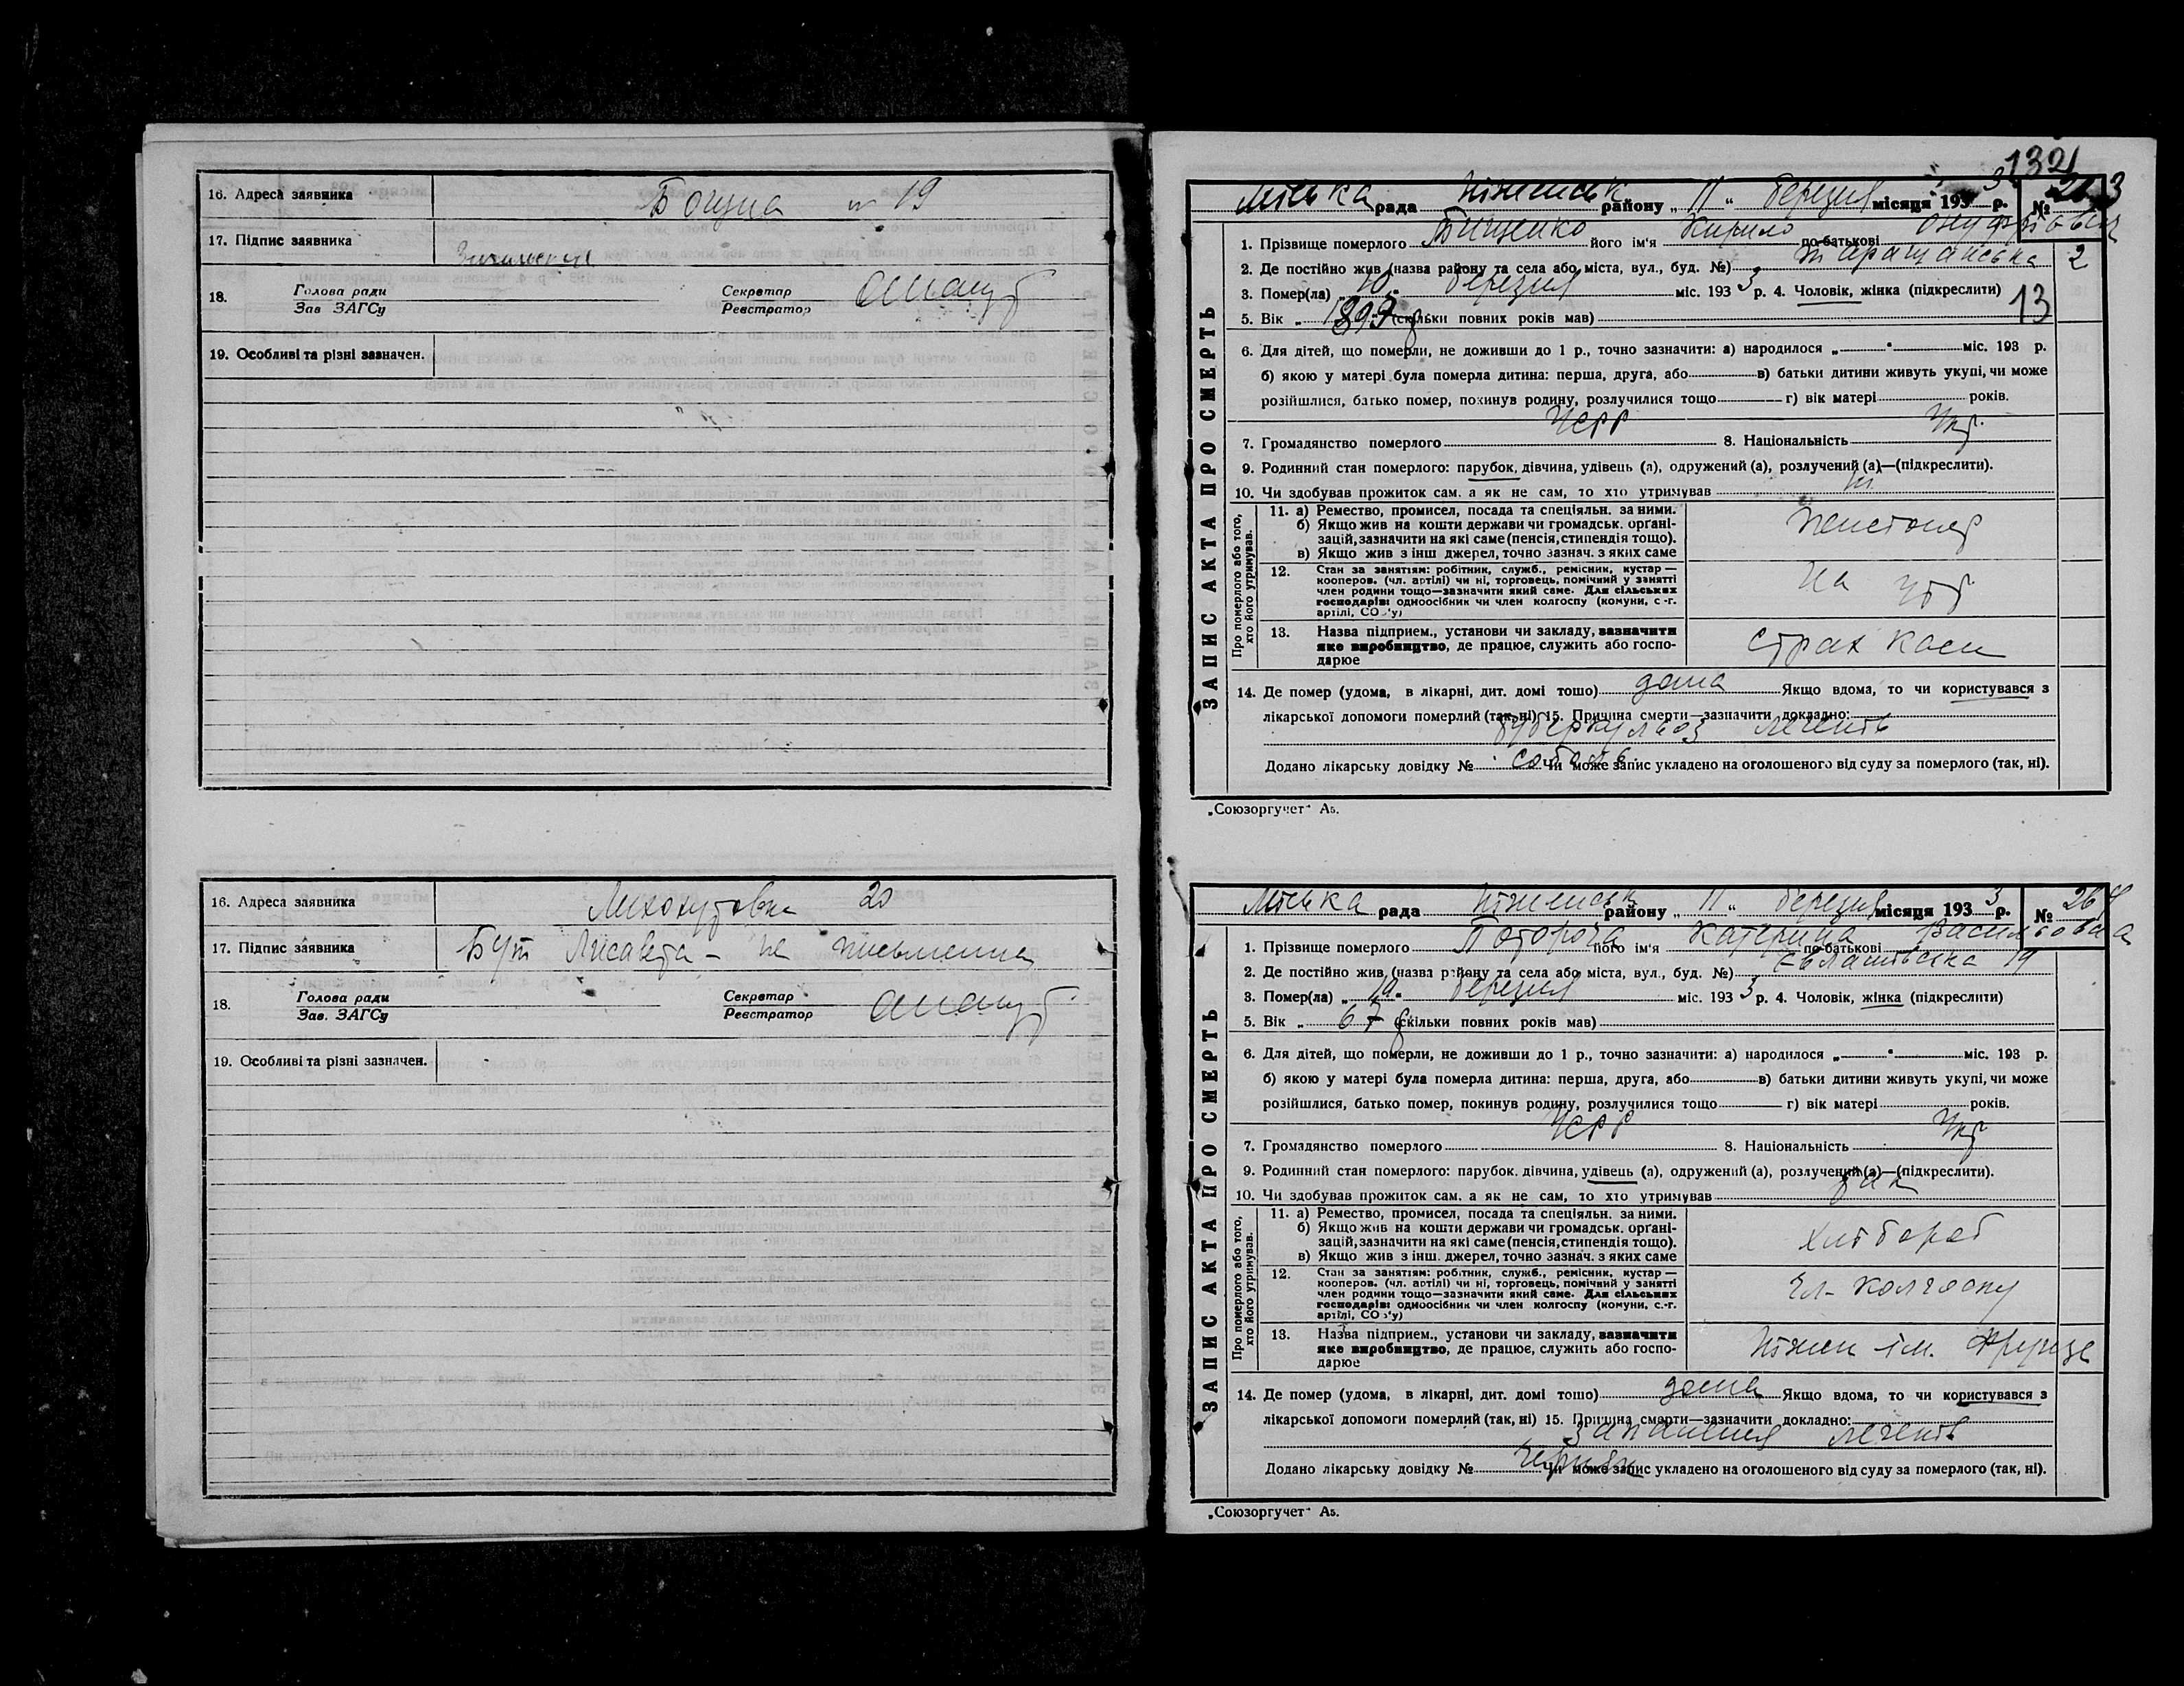 16. Адреса заявника Богуна № 19
17. Підпис заявника
18. Голова ради Секретар
Зав ЗАГСу Реєстратор
19. Особливі та різні зазначен.
16. Адреса заявника 20
17. Підпис заявника Бут Лисавета - не письменна
18. Голова ради Секретар
Зав. ЗАГСу Реєстратор
19. Особливі та різні зазначен.
132
ЗАПИС АКТА ПРО СМЕРТЬ
Міська рада Ніженськ району „ 11 “ березня місяця 1933 р. №
1. Прізвище померлого його ім'я Кирило по-батькові Онуфрієвич
2. Де постійно жив (назва району та села або міста, вул., буд. №) 2
3. Помер(ла) „ 10 „ березня міс. 193 3 р. 4. Чоловік, жінка (підкреслити) 13
5. Вік „ (скільки повних років мав)
6. Для дітей, що померли, не доживши до 1 р., точно зазначити: а) народилося „ “ міс. 193 р.
б) якою у матері була померла дитина: перша, друга, або в) батьки дитини живуть укупі, чи може
розійшлися, батько помер, покинув родину, розлучилися тощо г) вік матері років.
7. Громадянство померлого УСРР 8. Національність Укр.
9. Родинний стан померлого: парубок, дівчина, удівець (а), одружений (а), розлучений (а)—(підкреслити).
10. Чи здобував прожиток сам, а як не сам, то хто утримував
Про померлого або того, хто його утримував.
11. а) Ремество, промисел, посада та спеціяльн. за ними.
б) Якщо жив на кошти держави чи громадськ. органі-
зацій, зазначити на які саме (пенсія, стипендія тощо).
в) Якщо жив з інш джерел, точно зазнач. з яких саме
Пенсіонер
12. Стан за заняттям: робітник, служб., ремісник, кустар—
кооперов. (чл. артілі) чи ні, торговець, помічний у занятті
член родини тощо—зазначити який саме. Для сільських
господарів: одноосібник чи член колгоспу (комуни, с.-г.
артілі, СОЗ'у)
13. Назва підприєм., установи чи закладу, зазначити
яке виробництво, де працює, служить або госпо-
дарює
Страх каси
14. Де помер (удома, в лікарні, дит. домі тощо) дома Якщо вдома, то чи користувався з
лікарської допомоги померлий (так, ні) 15. Причина смерти—зазначити докладно:
туберкульоз легенів
Додано лікарську довідку № Чи може запис укладено на оголошеного від суду за померлого (так, ні).
„Союзоргучет“ А5.
ЗАПИС АКТА ПРО СМЕРТЬ
Міська рада Ніженськ району „ 11 “ березня місяця 193 3 р. № 264
1. Прізвище померлого Потороча його ім'я Катерина по-батькові Васильовна
2. Де постійно жив (назва району та села або міста, вул., буд. №) Євлашівська 19
3. Помер(ла) „ 10 „ березня міс. 193 3 р. 4. Чоловік, жінка (підкреслити)
5. Вік „ 67 р (скільки повних років мав)
6. Для дітей, що померли, не доживши до 1 р., точно зазначити: а) народилося „ “ міс. 193 р.
б) якою у матері була померла дитина: перша, друга, або в) батьки дитини живуть укупі, чи може
розійшлися, батько помер, покинув родину, розлучилися тощо г) вік матері років.
7. Громадянство померлого УСРР 8. Національність Укр
9. Родинний стан померлого: парубок, дівчина, удівець (а), одружений (а), розлучений (а)—(підкреслити).
10. Чи здобував прожиток сам, а як не сам, то хто утримував так
Про померлого або того, хто його утримував.
11. а) Ремество, промисел, посада та спеціяльн. за ними.
б) Якщо жив на кошти держави чи громадськ. органі-
зацій, зазначити на які саме (пенсія, стипендія тощо).
в) Якщо жив з інш. джерел, точно зазнач. з яких саме
хлібороб
12. Стан за заняттям: робітник, служб., ремісник, кустар—
кооперов. (чл. артілі) чи ні, торговець, помічний у занятті
член родини тощо—зазначити який саме. Для сільських
господарів: одноосібник чи член колгоспу (комуни, с.-г.
артілі, СОЗ'у)
чл- колгоспу
13. Назва підприєм., установи чи закладу, зазначити
яке виробництво, де працює, служить або госпо-
дарює
Ніжен ім. Фрунзе
14. Де помер (удома, в лікарні, дит. домі тощо) дома Якщо вдома, то чи користувався з
лікарської допомоги померлий (так, ні) 15. Причина смерти—зазначити докладно:
запалення легенів
Додано лікарську довідку № Чи може запис укладено на оголошеного від суду за померлого (так, ні).
„Союзоргучет“ А5.